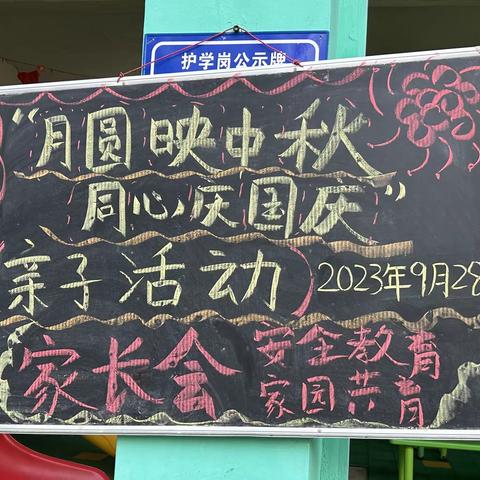 护学岗公示牌
"月圆映中秋
同心庆国庆"
亲子活动 2023年9月28
家长会 安全教育
家园共育